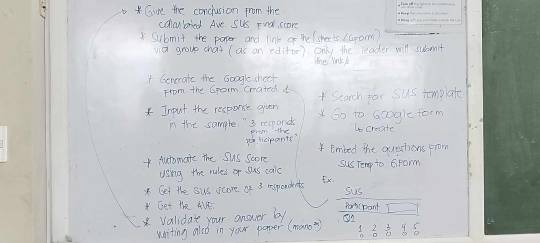 * Give the conclusion from the
calculated Ave SUS final score
* Submit the paper and link of the (sheets & Gform)
via group chat (as an editor). only the leader will submit
the link/s
* Generate the Google sheet
From the Gform Created
* Input the response given
in the sample. "3 responds
from the
participants"
* Automate the SUS Score
using the rules of SUS calc
* Get the SUS score of 3 respondents
* Get the AVE.
* Validate your answer by
writing also in your paper (mano")
* Search for SUS template
* Go to Google form
↳ create
* Embed the questions from
SUS Temp to GForm
Ex.
SUS
Participant
Q1
1 2 3 4 5